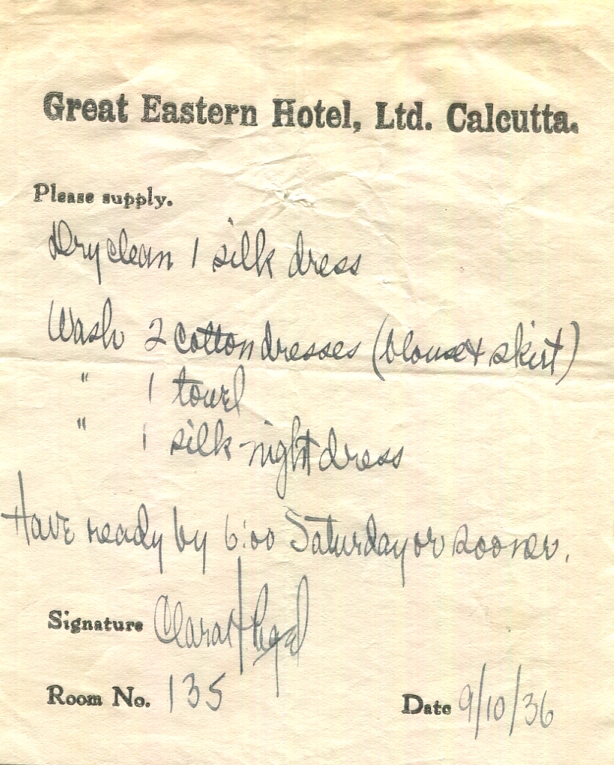 Great Eastern Hotel, Ltd. Calcutta.
Please supply.
Dry clean 1 silk dress
Wash 2 cotton dresses (blouse & skirt)
" 1 towel
" 1 silk night dress
Have ready by 6:00 Saturday or sooner.
Signature Clara
Room No. 135
Date 9/10/36